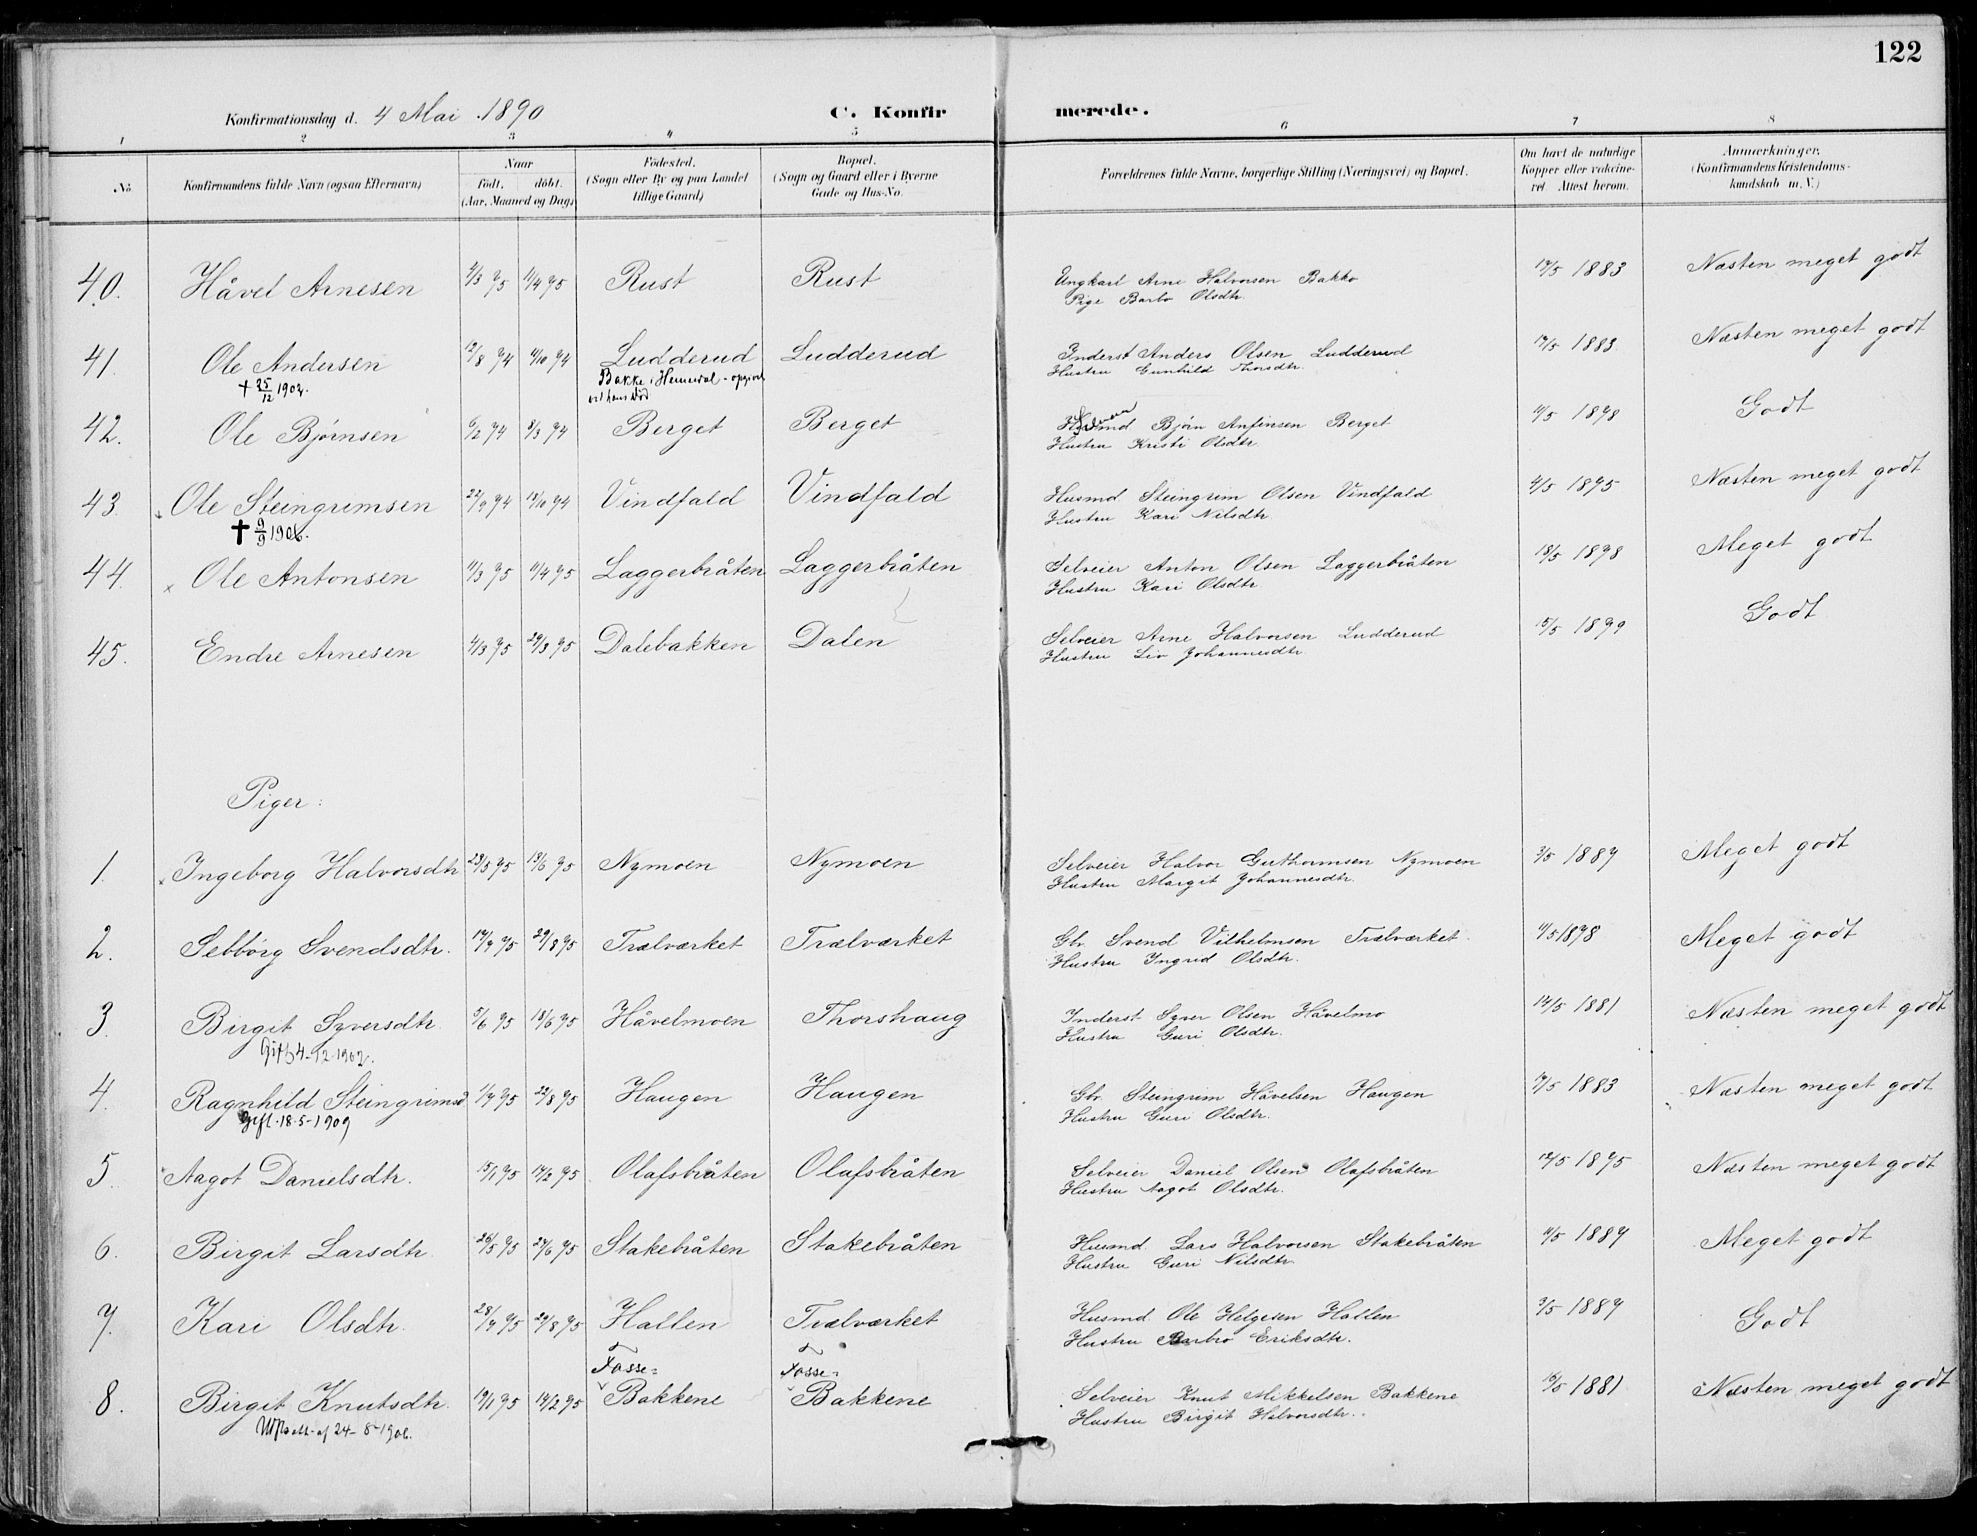 122
Konfirmationsdag d. 4 Mai 1890
C. Konfirmerede.
1 2 3 4 5 6 7 8
No
Konfirmandens fulde Navn (ogsaa Efternavn)
Naar født. døbt. (Aar, Maaned og Dag)
Fødested. (Sogn eller By og paa Landet tillige Gaard)
Bopæl. (Sogn og Gaard eller i Byerne Gade og Hus-No.)
Forældrenes fulde Navne, borgerlige Stilling (Næringsvei) og Bopæl.
Om havt de naturlige Kopper eller vakcineret. Attest herom.
Anmærkninger. (Konfirmandens Kristendomskundskab m. V.)
40. Håvel Arnesen 4/3 75 11/4 75 Rust Rust Ungkarl Arne Halvorsen Bakko 1883 Næsten meget godt
Pige Barbo Olsdtr.
41. Ole Andersen 12/8 74 74 Ludderud Ludderud Inderst Anders Olsen Ludderud 1883. Næsten meget godt
† 25/12 1902. Bakke i Hemsedal - opgivet ved hans død Hustru Gunhild Thorsdtr.
42. Ole Bjørnsen 6/2 74 8/3 74 Berget Berget Selveier Bjørn Anfinsen Berget 1878 Godt
Hustru Kristi Olsdtr.
43. Ole Steingrimsen 22/9 74 18/10 74 Vindfald Vindfald Husmd Steingrim Olsen Vindfald 4/5 1875 Næsten meget godt
† 9/9 1906. Hustru Kari Nilsdtr.
44. Ole Antonsen 11/3 75 11/4 75 Laggerbråten Laggerbråten Selveier Anton Olsen Laggerbråten 18/5 1878 Meget godt
Hustru Kari Olsdtr.
45. Endre Arnesen 4/3 75 29/3 75 Dalebakken Dalen Selveier Arne Halvorsen Ludderud 15/5 1879 Godt
Hustru Liv Johannesdtr.
Piger:
1. Ingeborg Halvorsdtr 23/5 75 13/6 75 Nymoen Nymoen Selveier Halvor Guthormsen Nymoen 3/5 1887 Meget godt
Hustru Margit Johannesdtr.
2. Sebbørg Svendsdtr. 14/7 75 29/8 75 Trælværket Trælværket Gbr. Svend Vilhelmsen Trælværket. 1878 Meget godt
Hustru Ingrid Olsdtr.
3. Birgit Syversdtr. 5/6 75 18/6 75 Håvelmoen Thorshaug Inderst Syver Olsen Håvelmo 14/5 1881 Næsten meget godt
Gift 4-12-1902. Hustru Guri Olsdtr.
4. Ragnhild Steingrimsd 1/7 75 22/8 75 Haugen Haugen Gbr. Steingrim Håvelsen Haugen 1883 Næsten meget godt
Gift. 18-5-1909 Hustru Guri Olsdtr.
5. Aagot Danielsdtr. 15/1 75 14/2 75 Olafsbråten Olafsbråten Selveier Daniel Olsen Olafsbråten 12/5 1875 Næsten meget godt
Hustru Aagot Olsdtr.
6. Birgit Larsdtr. 26/5 75 27/6 75 Stakebråten Stakebråten Husmd. Lars Halvorsen Stakebråten 1887 Meget godt
Hustru Guri Nilsdtr.
7. Kari Olsdtr. 28/7 75 29/8 75 Hallen Trælværket Husmd. Ole Helgesen Hallen 3/5 1887 Godt
Hustru Barbro Eriksdtr.
Fosse= Fosse=
8. Birgit Knutsdtr. 19/1 75 14/2 75 Bakkene Bakkene Selveier Knut Mikkelsen Bakkene 1881 Næsten meget godt
af 24-8-1906. Hustru Birgit Halvorsdtr.